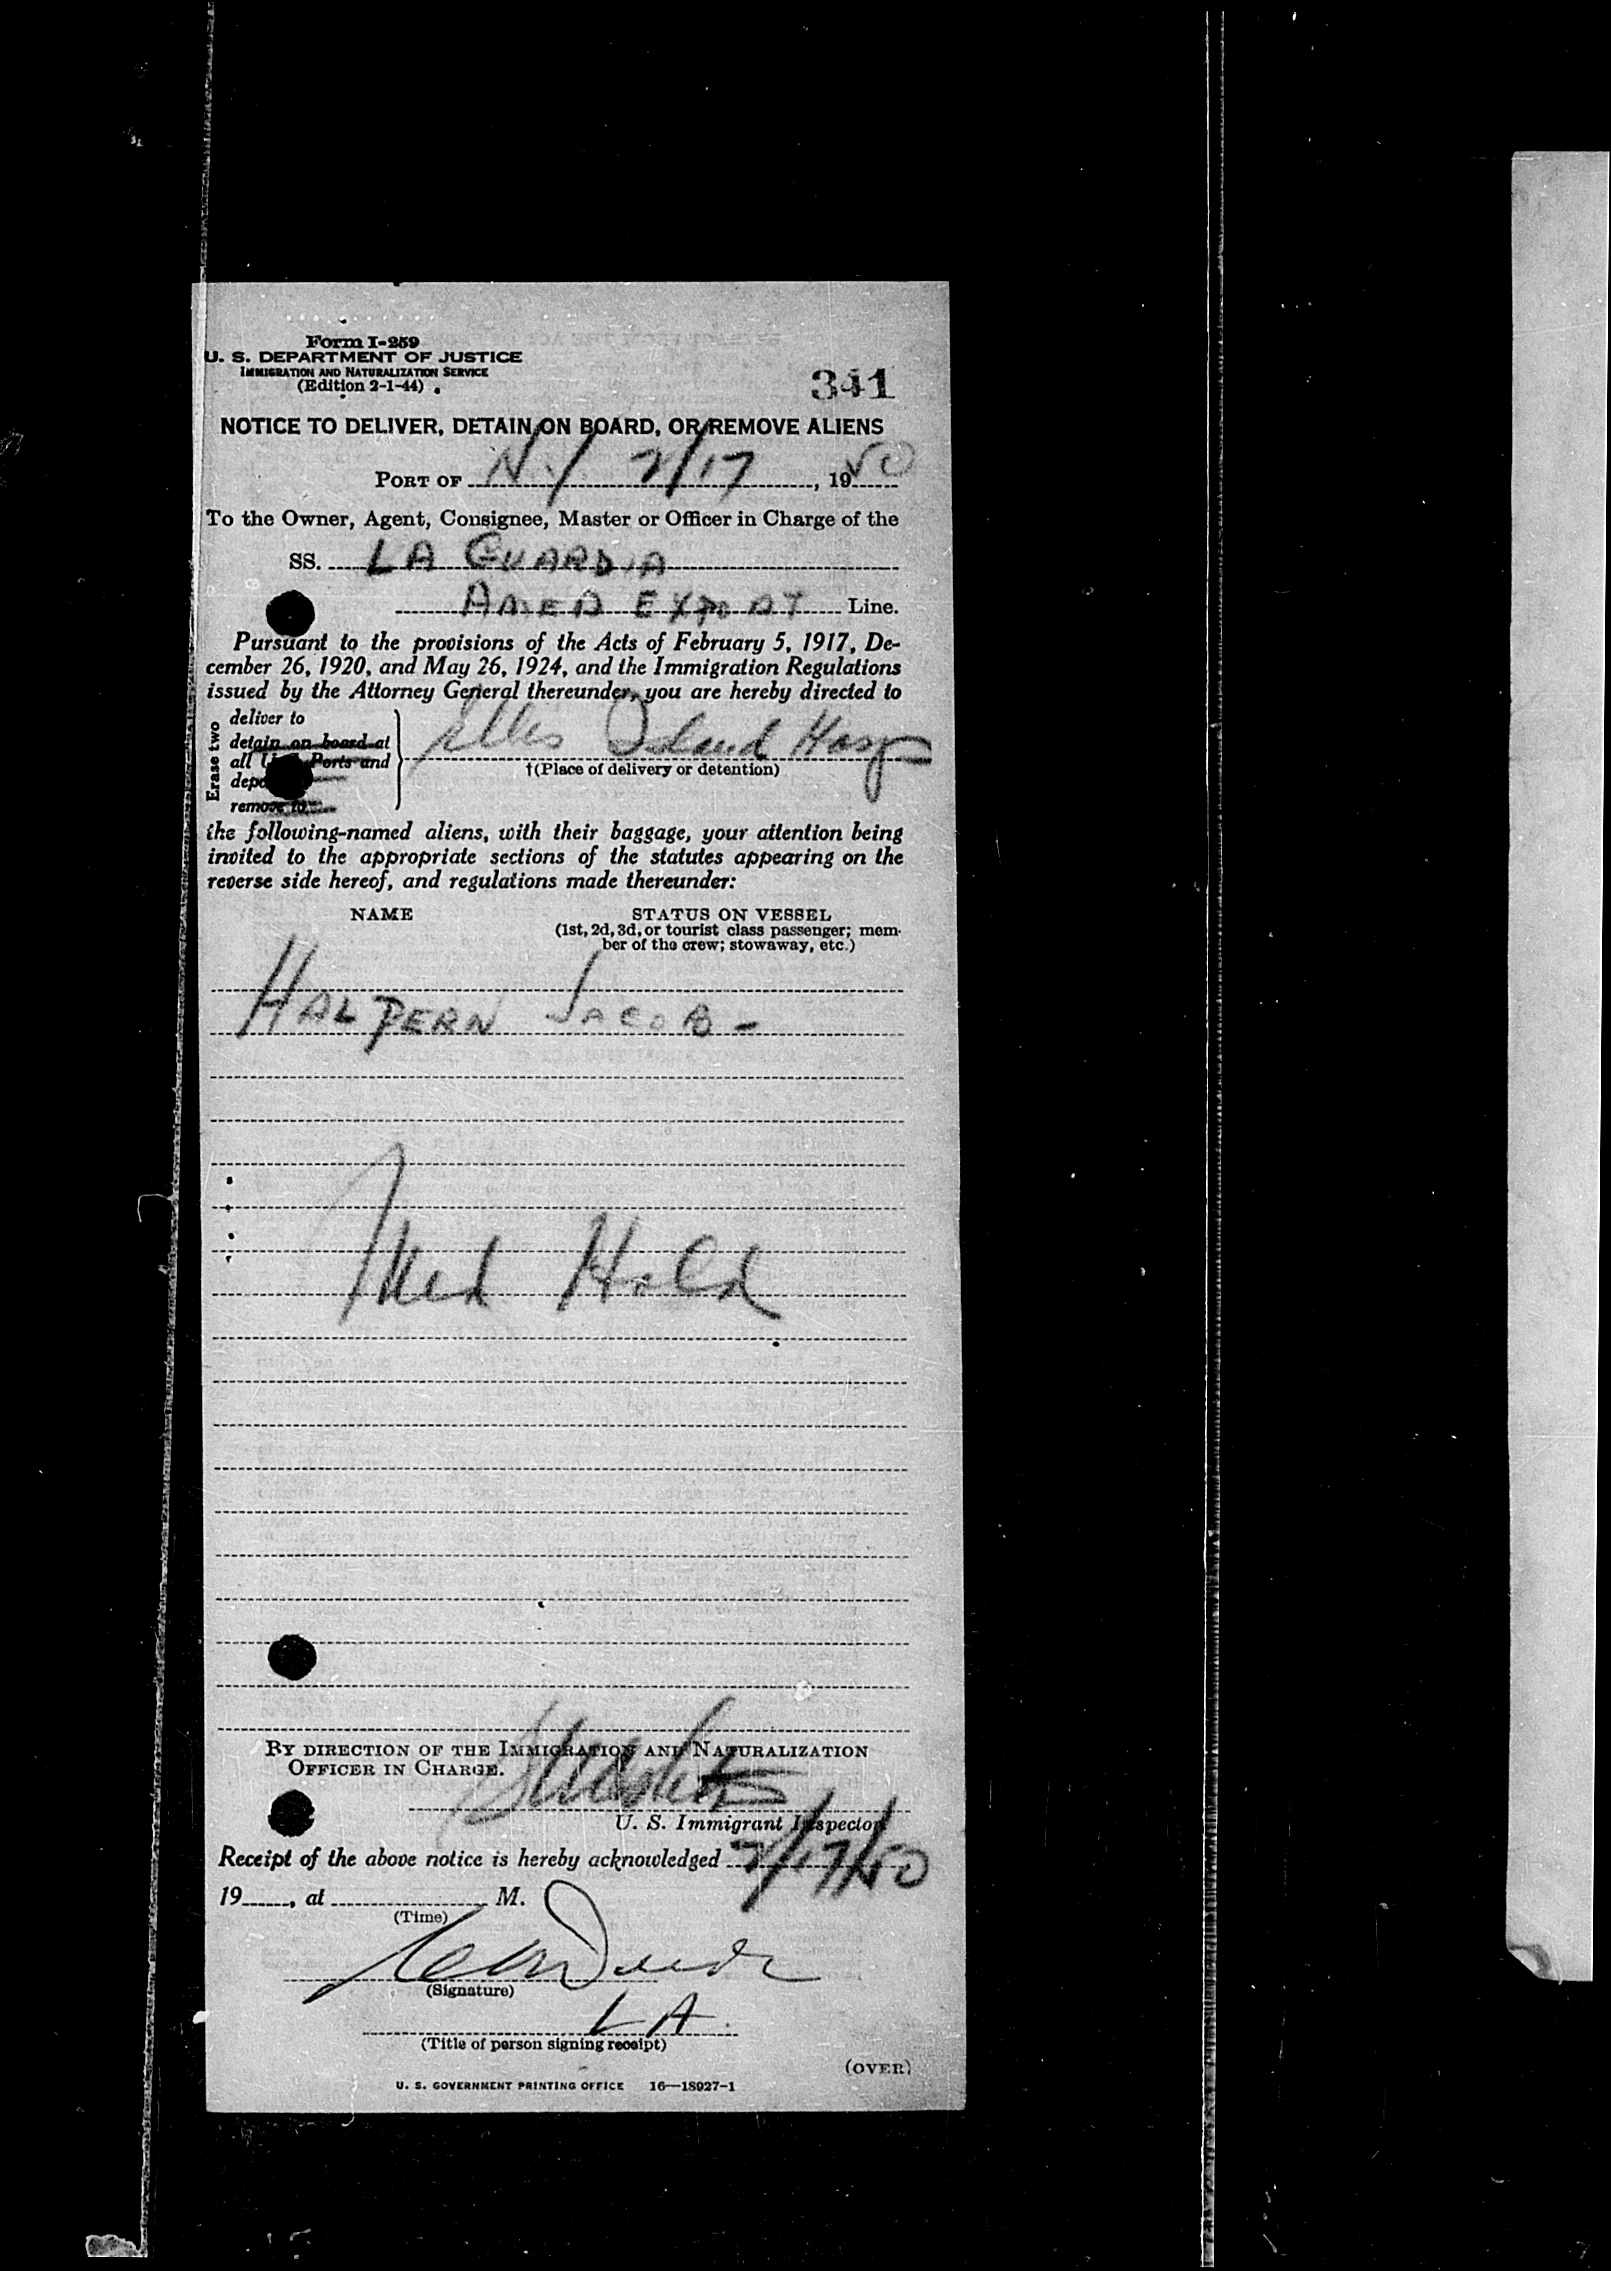 Form I-259
U. S. DEPARTMENT OF JUSTICE
IMMIGRATION AND NATURALIZATION SERVICE
(Edition 2-1-44)
341
NOTICE TO DELIVER, DETAIN ON BOARD, OR REMOVE ALIENS
PORT OF N.Y 2/17, 1950
To the Owner, Agent, Consignee, Master or Officer in Charge of the
SS. LA GUARDIA
AMER EXPORT Line.
Pursuant to the provisions of the Acts of February 5, 1917, De-
cember 26, 1920, and May 26, 1924, and the Immigration Regulations
issued by the Attorney General thereunder, you are hereby directed to
Erase two
deliver to
detain on board at
all Ports and
remove to
Ellis Island Hosp
†(Place of delivery or detention)
the following-named aliens, with their baggage, your attention being
invited to the appropriate sections of the statutes appearing on the
reverse side hereof, and regulations made thereunder:
NAME STATUS ON VESSEL
(1st, 2d, 3d, or tourist class passenger; mem-
ber of the crew; stowaway, etc.)
HALPERN JACOB -
Med Hold
BY DIRECTION OF THE IMMIGRATION AND NATURALIZATION
OFFICER IN CHARGE.
U. S. Immigrant Inspector
Receipt of the above notice is hereby acknowledged 2/17/50
19____, at ____ M.
(Time)
(Signature)
LA
(Title of person signing receipt)
(OVER)
U. S. GOVERNMENT PRINTING OFFICE 16—18927-1